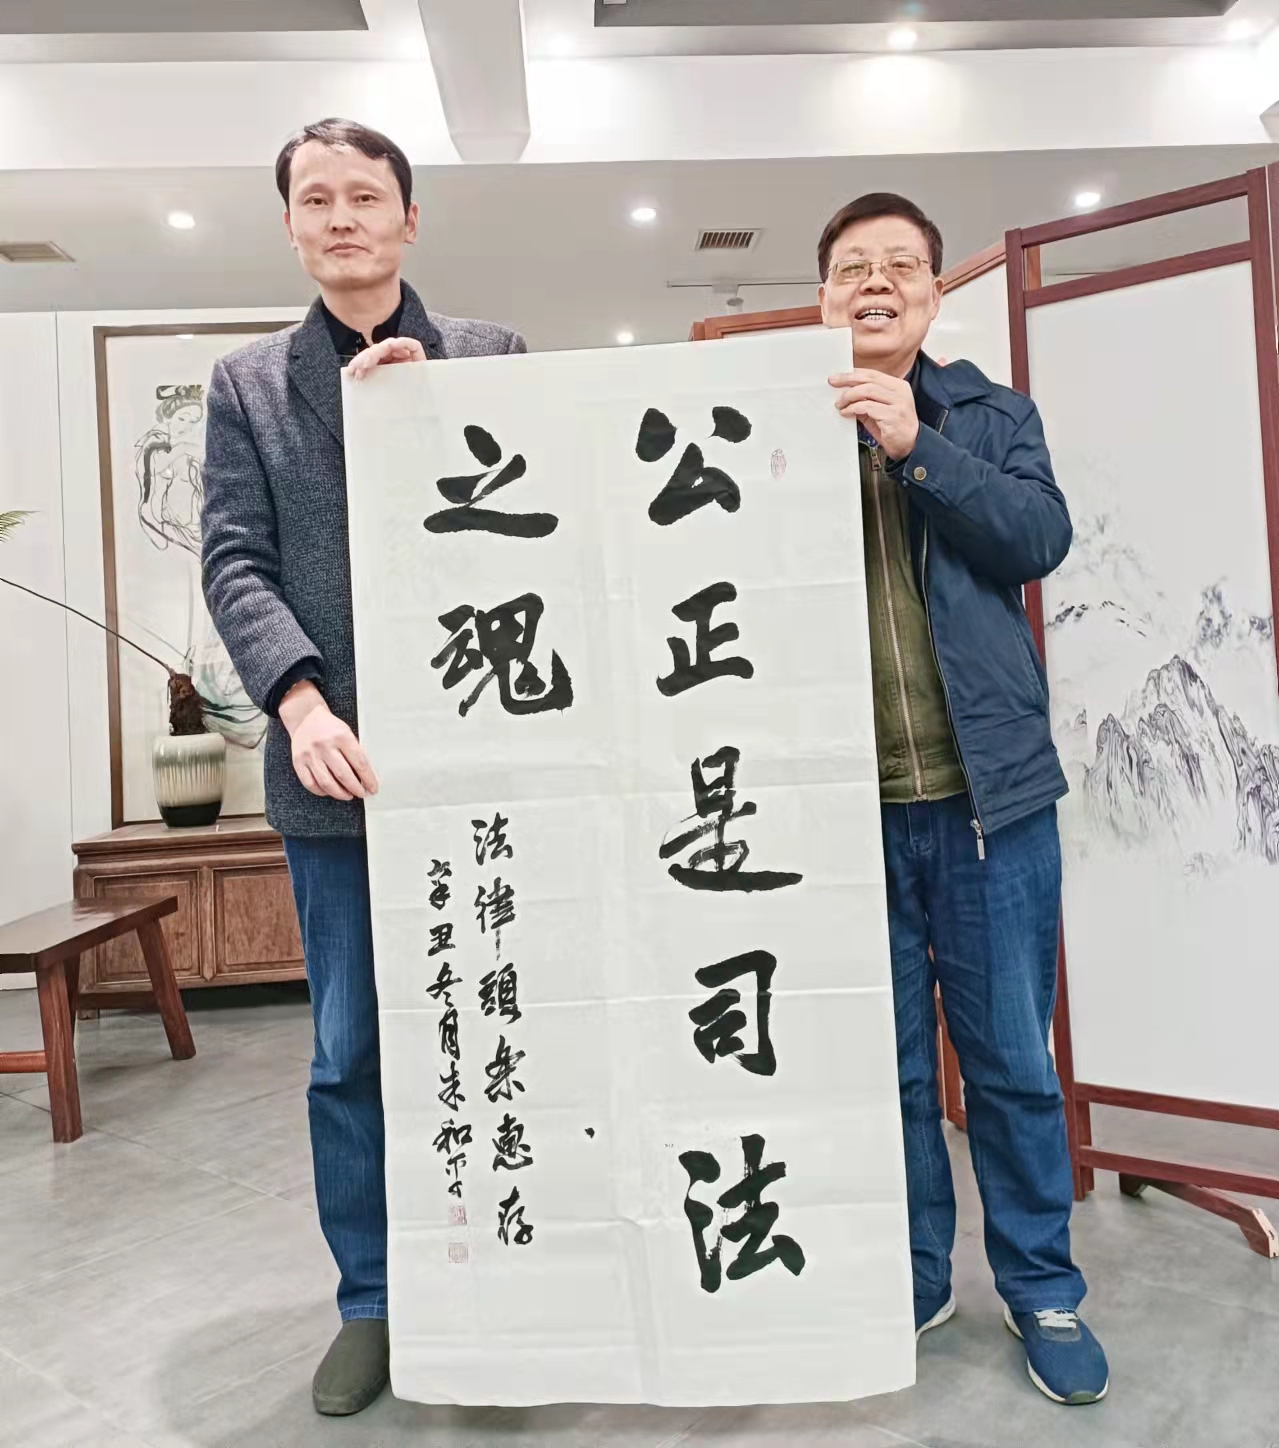 公正是司法
之魂
法律頭条惠存
辛丑冬月朱和平